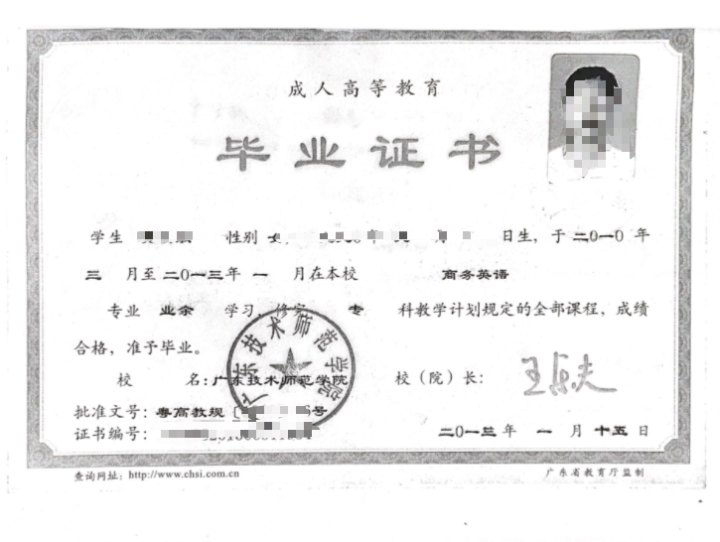 成人高等教育
毕业证书
学生 性别 日生，于二〇一〇年
三 月至二〇一三年 一 月在本校 商务英语
专业 业余 学习，修完 专 科教学计划规定的全部课程，成绩
合格，准予毕业。
校 名：广东技术师范学院 校（院）长：
广东技术师范学院
批准文号：粤高教规 号
证书编号： 二〇一三年 一 月 十五 日
查询网址：http://www.chsi.com.cn 广东省教育厅监制